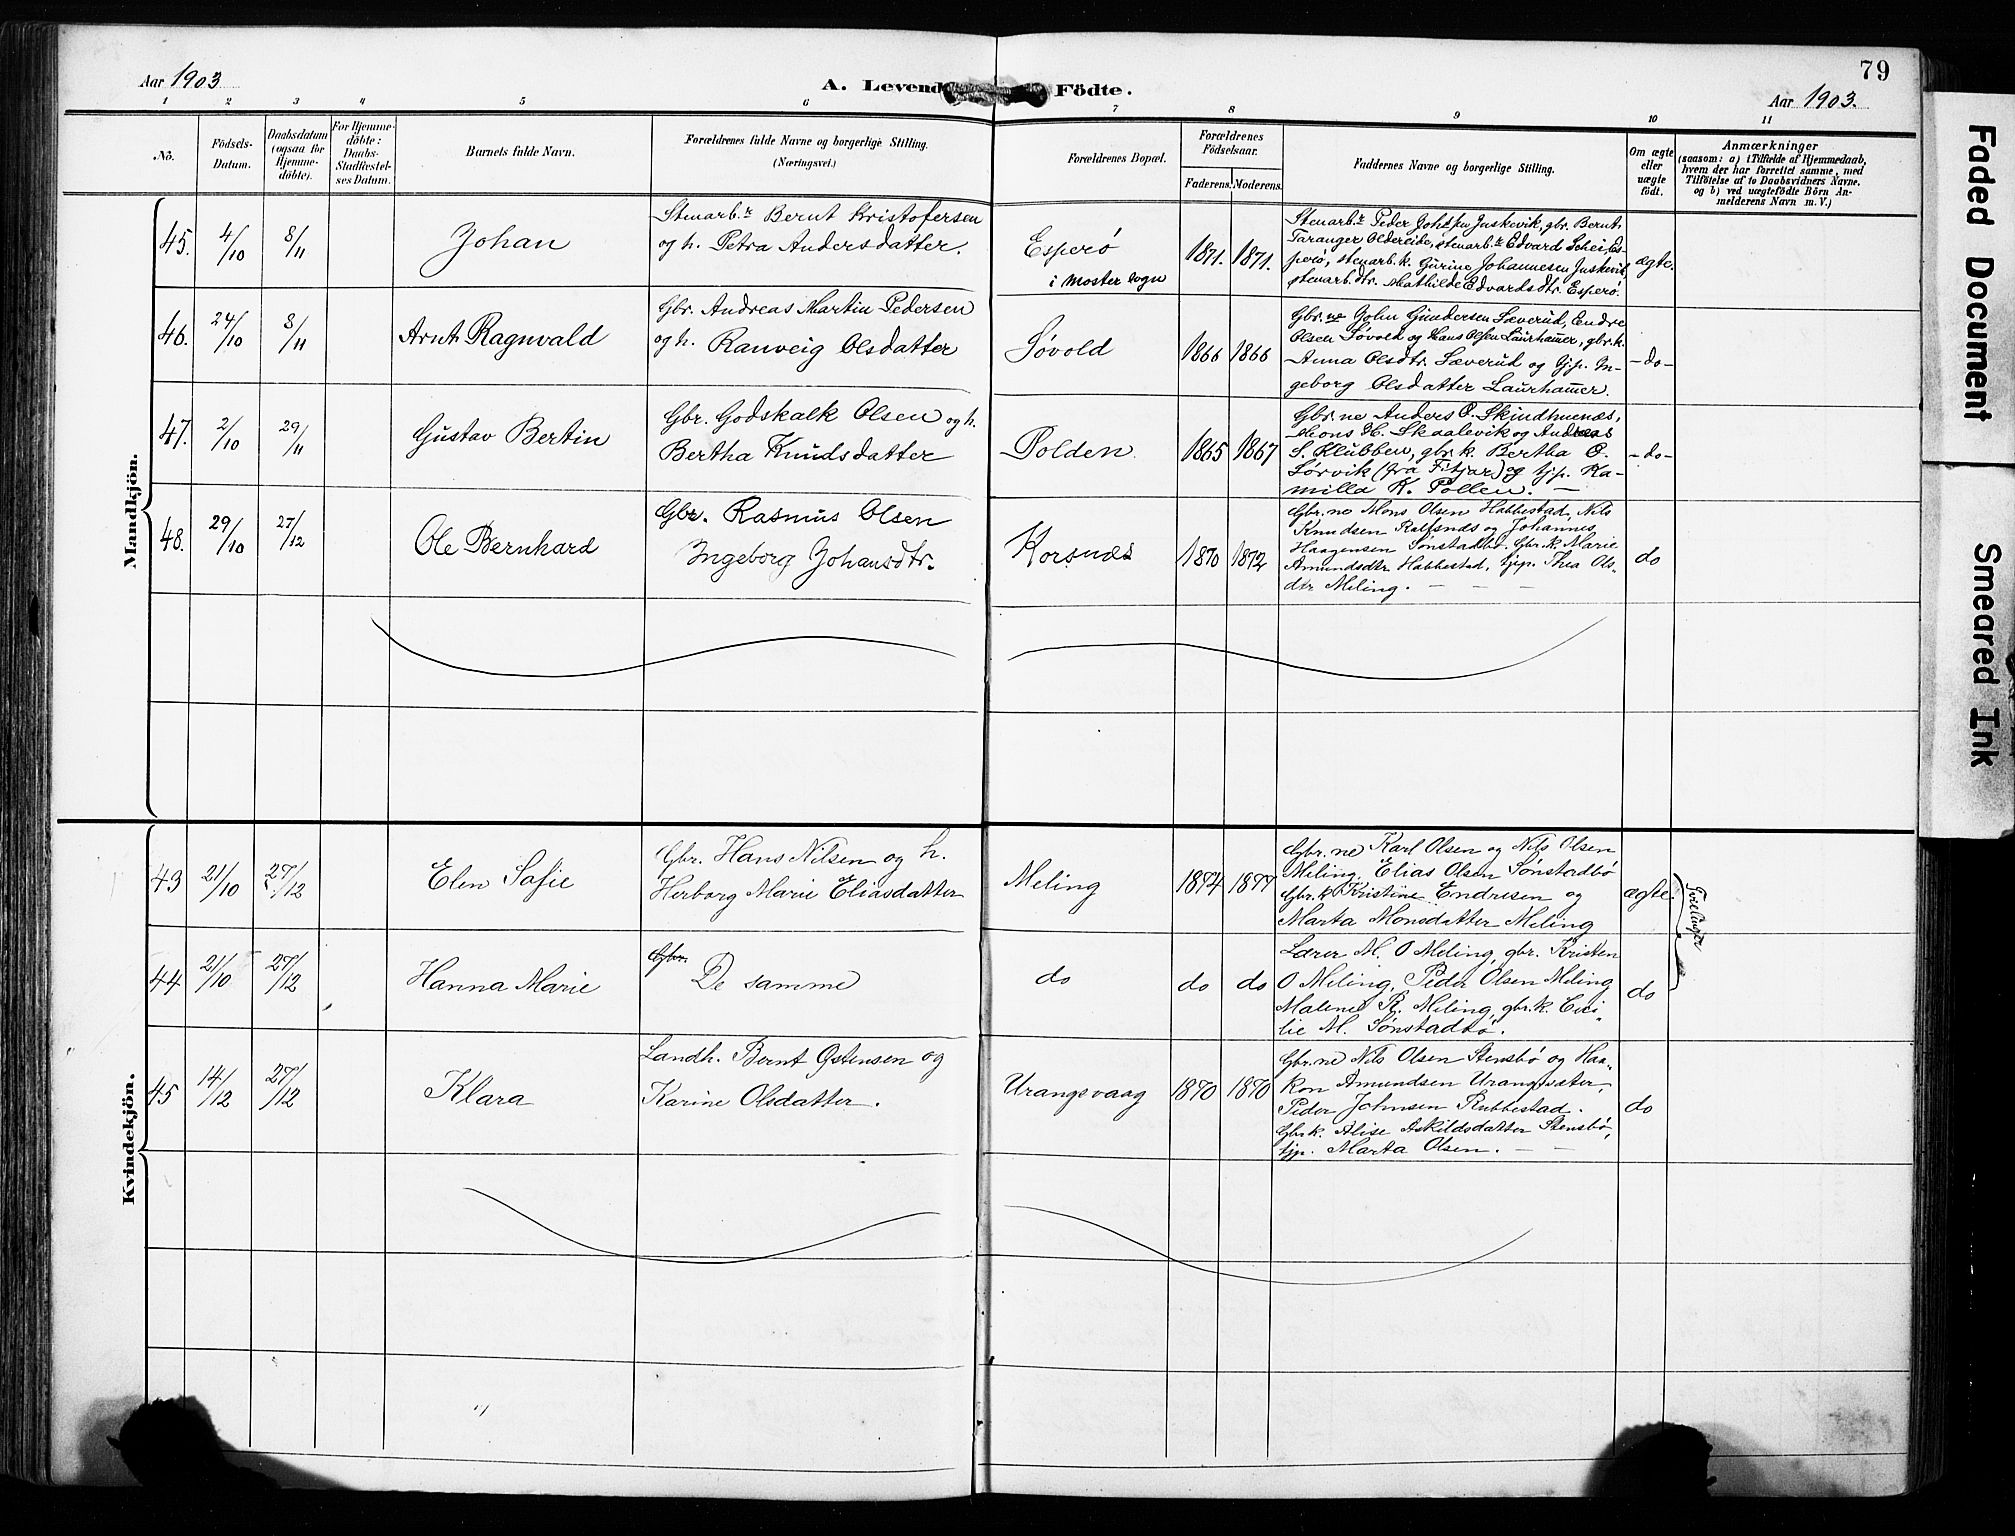 79
Aar 1903
A. Levende Födte.
Aar 1903.
1 2 3 4 5 6 7 8 9 10 11
No.
Födsels-
Datum.
Daabsdatum
(ogsaa for
Hjemme-
döbte).
For Hjemme-
döbte:
Daabs-
Stadfæstel-
ses Datum.
Barnets fulde Navn.
Forældrenes fulde Navne og borgerlige Stilling.
(Næringsvei.)
Forældrenes Bopæl.
Forældrenes
Födselsaar.
Faderens. Moderens.
Faddernes Navne og borgerlige Stilling.
Om ægte
eller
uægte
födt.
Anmærkninger
(saasom: a) i Tilfælde af Hjemmedaab,
hvem der har forrettet samme, med
Tilföielse af to Daabsvidners Navne.
og b) ved uægtefödte Börn An-
melderens Navn m. V.)
Mandkjön.
45. 4/10 8/11
Johan
Stenarb.r Bernt Kristofersen
og h. Petra Andersdatter.
Esperö
i Moster sogn
1871. 1871.
Stenarb.r Peder Juskevik, gbr. Bernt
Taranger Oldereide, stenarb.r Edvard Es-
perö, stenarb.k. Gurine Johannesen Juskevik,
stenarb.dtr. Mathilde Edvardsdtr. Esperö.
ægte.
46. 24/10 8/11
Arnt Ragnvald
Gbr. Andreas Martin Pedersen
og h. Ranveig Olsdatter
Søvold
1866 1866
Gbr.ne John Gundersen Sæverud, Endre
Olsen Søvold og Hans Olsen Laurhammer, gbr.k.
Anna Olsdtr. Sæverud og tjp. In-
geborg Olsdatter Laurhammer.
- do -
47. 2/10 29/11
Gustav Bertin
Gbr. Godskalk Olsen og h.
Bertha Knudsdatter
Polden.
1865 1867
Gbr.ne Anders O. Skindhuenæs,
Mons H. Skaalevik og Andreas
S. Klubben, gbr.k. Bertha O.
Sørvik (fra Fitjar) og tjp. Ka-
milla K. Pollen. -
- do -
48. 29/10 27/12
Ole Bernhard
Gbr. Rasmus Olsen
Ingeborg Johansdtr.
Korsnæs
1870 1872
Gbr.ne Mons Olsen Habbestad, Nils
Knudsen og Johannes
Haagensen Sønstadbø. Gbr.k. Marie
Amundsdtr Habbestad, tjp. Thea Ols-
dtr Meling. - - -
do
Kvindekjön.
43 21/10 27/12
Elen Sofie
Gbr. Hans Nilsen og h.
Herborg Marie Eliasdatter
Meling
1874 1877
Gbr.ne Karl Olsen og Nils Olsen
Meling, Elias Olsen Sønstadbø
Gbr.k Kristine Endresen og
Marta Monsdatter Meling
ægte.
Tvillinger
44 21/10 27/12
Hanna Marie
Gbr.
De samme
do
do do
Lærer M. O Meling, gbr. Kristen
O Meling, Peder Olsen Meling
Malene R. Meling, gbr.k. Ceci-
lie M. Sønstadbø.
do
45 14/12 27/12
Klara
Landh. Bernt Østensen og
Karine Olsdatter.
Urangsvaag
1870 1870
Gbr.ne Nils Olsen Stensbø og Haa-
kon Amundsen Urangsæter,
Peder Johnsen Rubbestad.
Gbr.k. Alise Askildsdatter Stensbø,
tjp. Marta Olsen. - -
do
Faded Document
Smeared Ink